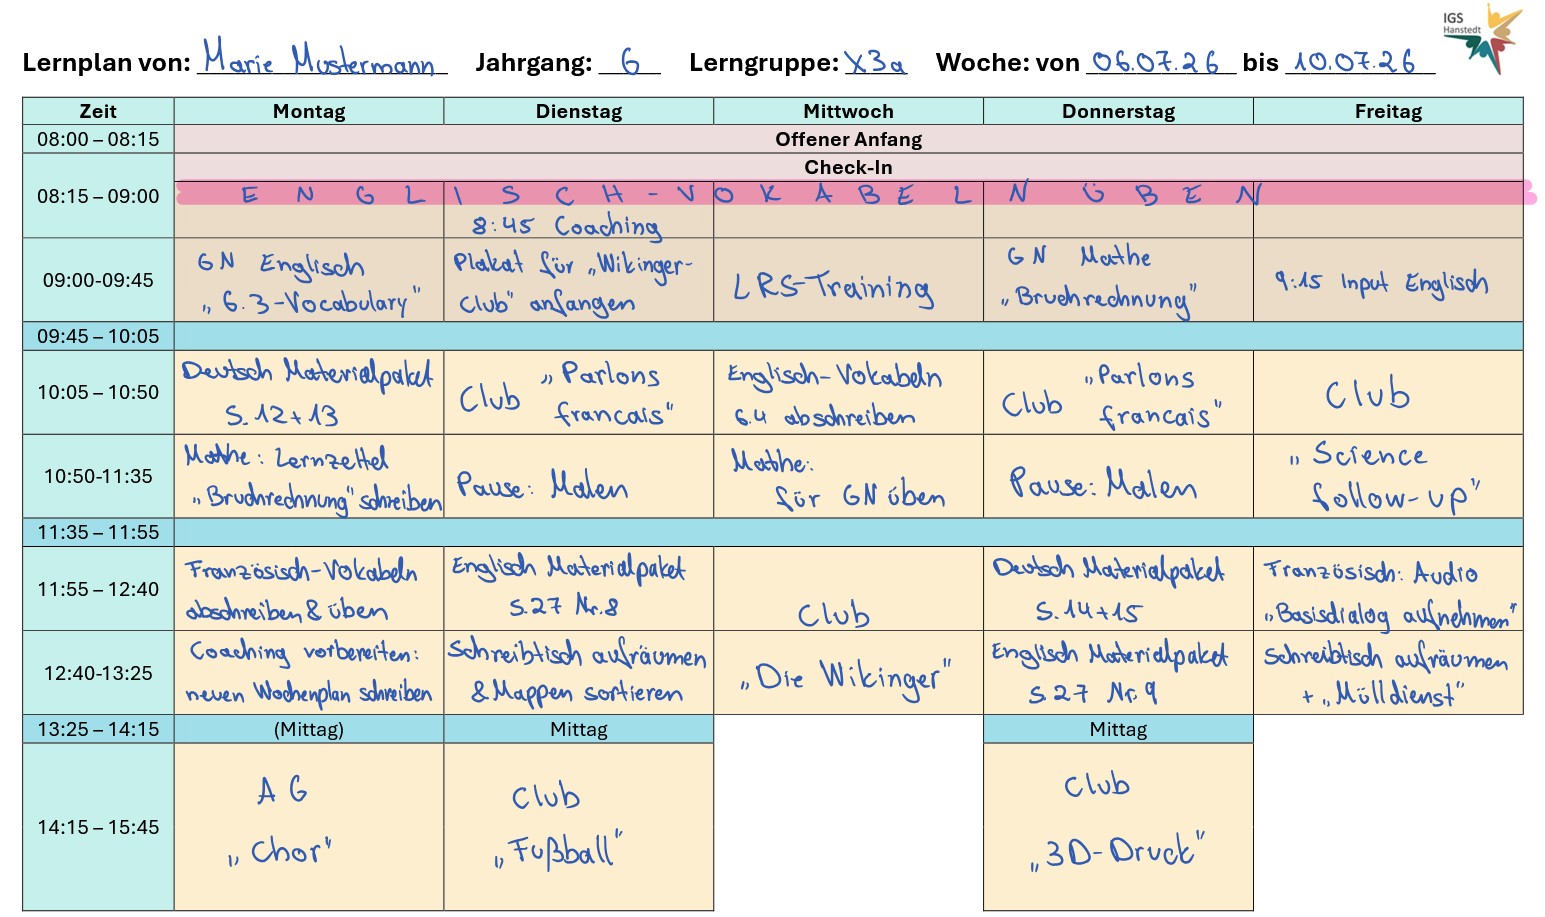 IGS
Hanstedt
Lernplan von: Marie Mustermann Jahrgang: 6 Lerngruppe: X3a Woche: von 06.07.26 bis 10.07.26
Zeit Montag Dienstag Mittwoch Donnerstag Freitag
08:00 – 08:15 Offener Anfang
Check-In
08:15 – 09:00 ENGLISCH-VOKABELN ÜBEN
8:45 Coaching
09:00-09:45
GN Englisch
„6.3-Vocabulary"
Plakat für „Wikinger-
Club" anfangen
LRS-Training
GN Mathe
„Bruchrechnung"
9:15 Input Englisch
09:45 – 10:05
10:05 – 10:50
Deutsch Materialpaket
S. 12+13
Club „Parlons
francais"
Englisch-Vokabeln
6.4 abschreiben
Club „Parlons
francais"
Club
10:50-11:35
Mathe: Lernzettel
„Bruchrechnung" schreiben
Pause: Malen
Mathe:
für GN üben
Pause: Malen
„Science
follow-up"
11:35 – 11:55
11:55 – 12:40
Französisch-Vokabeln
abschreiben & üben
Englisch Materialpaket
S.27 Nr.8
Club
Deutsch Materialpaket
S. 14+15
Französisch: Audio
„Basisdialog aufnehmen"
12:40-13:25
Coaching vorbereiten:
neuen Wochenplan schreiben
Schreibtisch aufräumen
& Mappen sortieren
„Die Wikinger"
Englisch Materialpaket
S.27 Nr.9
Schreibtisch aufräumen
+ „Mülldienst"
13:25 – 14:15 (Mittag) Mittag Mittag
14:15 – 15:45
AG
„Chor"
Club
„Fußball"
Club
„3D-Druck"